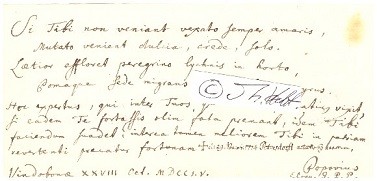 Si Tibi non veniant vexato semper amaris,
Mutato veniant dulcia, crede, solo.
Lætior effloret peregrino lychnis in horto,
Pomaque sede migrans
Hoc expertus, qui inter Tuos, vixit,
Si eadem Te fortassis olim fata premant, idem Tibi
faciendum suadet, interea tamen meliorem Tibi in patriam
revertenti precatur fortunam
Vindobonæ XXVIII Oct. MDCCLV. Popovius
© J. H. Held